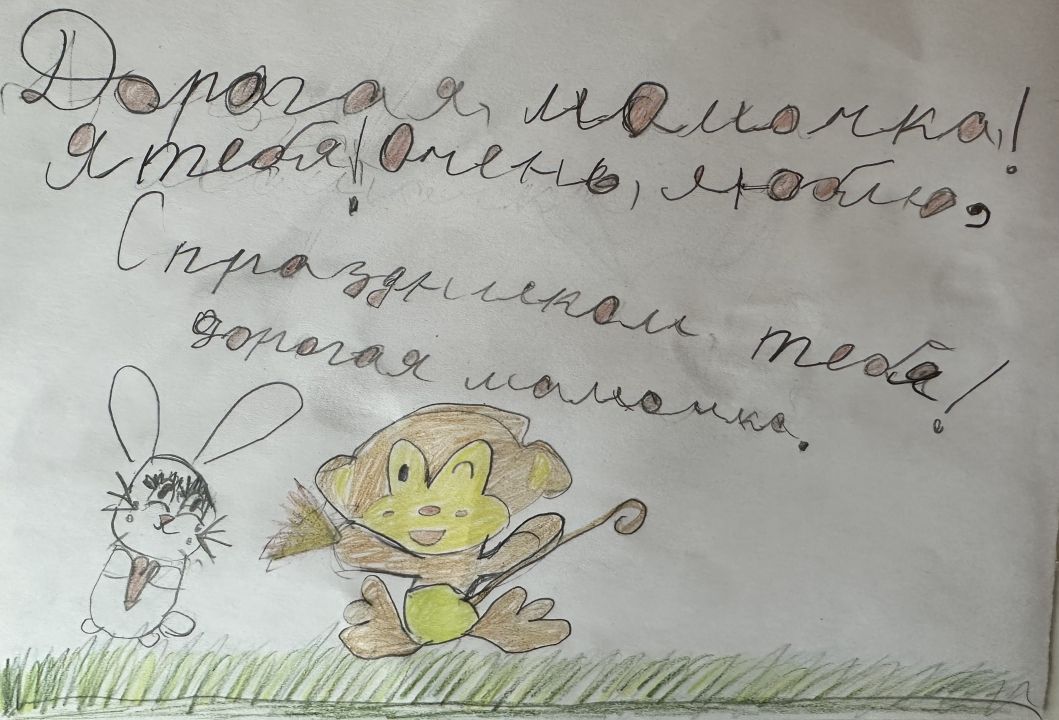 Дорогая, мамочка!
Я тебя! Очень, люблю,
С праздником тебя!
дорогая мамочка.